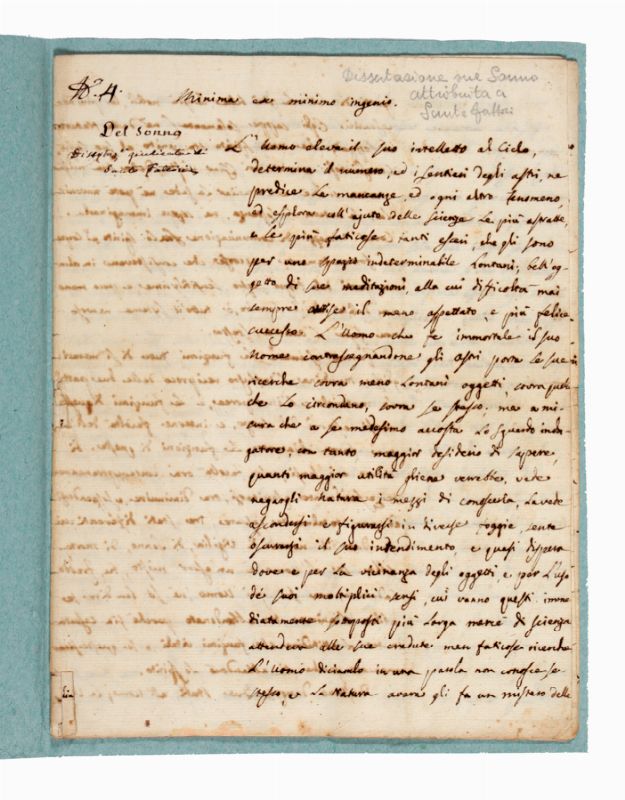 Dissertazione sul Sonno
attribuita a
Sante Fattori
N.º 4.
Minima ex minimo ingenio.
Del Sonno
Sante Fattori
L'Uomo eleva il suo intelletto al Cielo,
determina il numero, ed i sentieri degli astri, ne
predice le mancanze, ed ogni altro fenomeno,
ed esplora coll'ajuto delle scienze le più astratte,
e le più faticose tanti esseri, che gli sono
per uno spazio indeterminabile lontani, bell'og-
getto di sue meditazioni, alla cui difficoltà mai
sempre il meno aspettato, e più felice
successo. L'Uomo che fe immortale il suo
nome contrassegnandone gli astri porta le sue
ricerche sovra meno lontani oggetti, sovra quel-
che lo circondano, sovra se stesso; ma a mi-
sura che a se medesimo accosta lo sguardo inda-
gatore, con tanto maggior desiderio di sapere,
quanti maggior utilità gliene verrebbe, vede
negargli Natura i mezzi di conoscerla, la vede
ascondersi e figurarsi in diverse foggie, sente
oscurarsi il suo intendimento, e quasi dispera
dove e per la vicinanza degli oggetti, e per l'uso
de' suoi moltiplici sensi, cui vanno questi imme-
diatamente sottoposti più larga mercè di scienza
attendeva alle sue credute men faticose ricerche.
L'Uomo diciamlo in una parola non conosce se
stesso, e la Natura avara gli fa un mistero delle